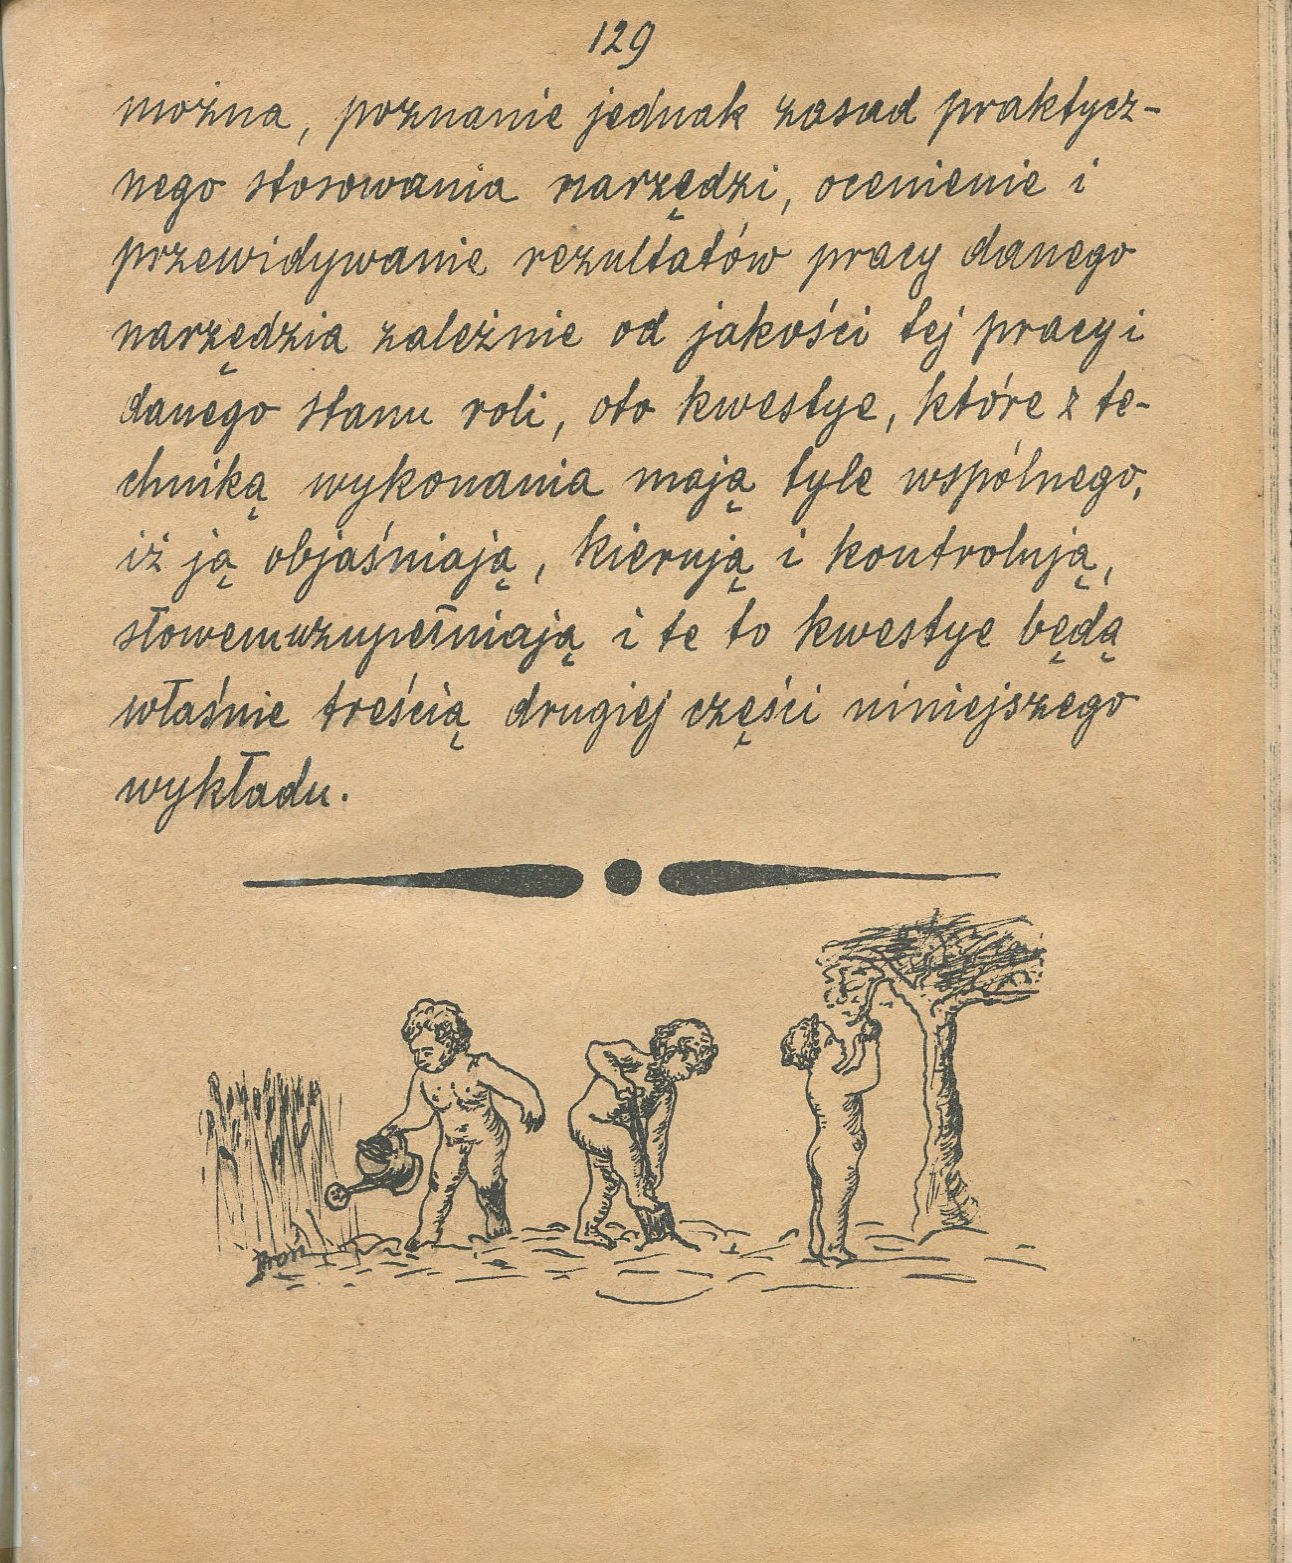 129
można, poznanie jednak zasad praktycz-
nego stosowania narzędzi, ocenienie i
przewidywanie rezultatów pracy danego
narzędzia zależnie od jakości tej pracy i
danego stanu roli, oto kwestye, które z te-
chniką wykonania mają tyle wspólnego,
iż ją objaśniają, kierują i kontrolują,
słowem uzupełniają i te to kwestye będą
właśnie treścią drugiej części niniejszego
wykładu.